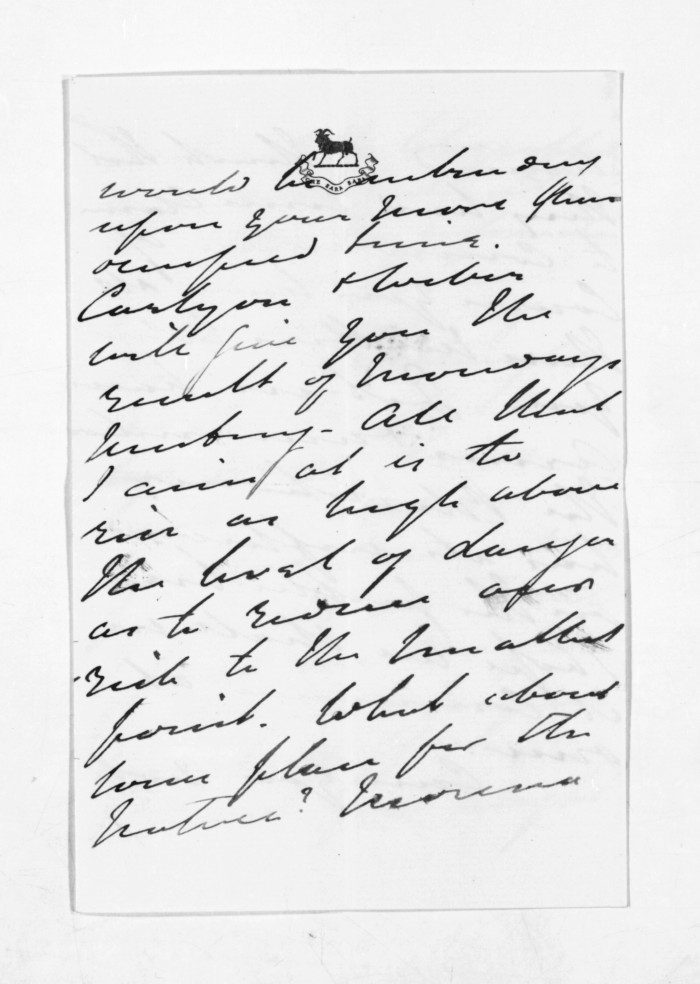 would be
upon your more than
occupied time.
Carlyon &
will give you the
result of Mondays
meeting - All that
I aim at is to
rise as high above
the level of danger
as to reduce
risk to the smallest
point. What about
some plan for the
Natives?